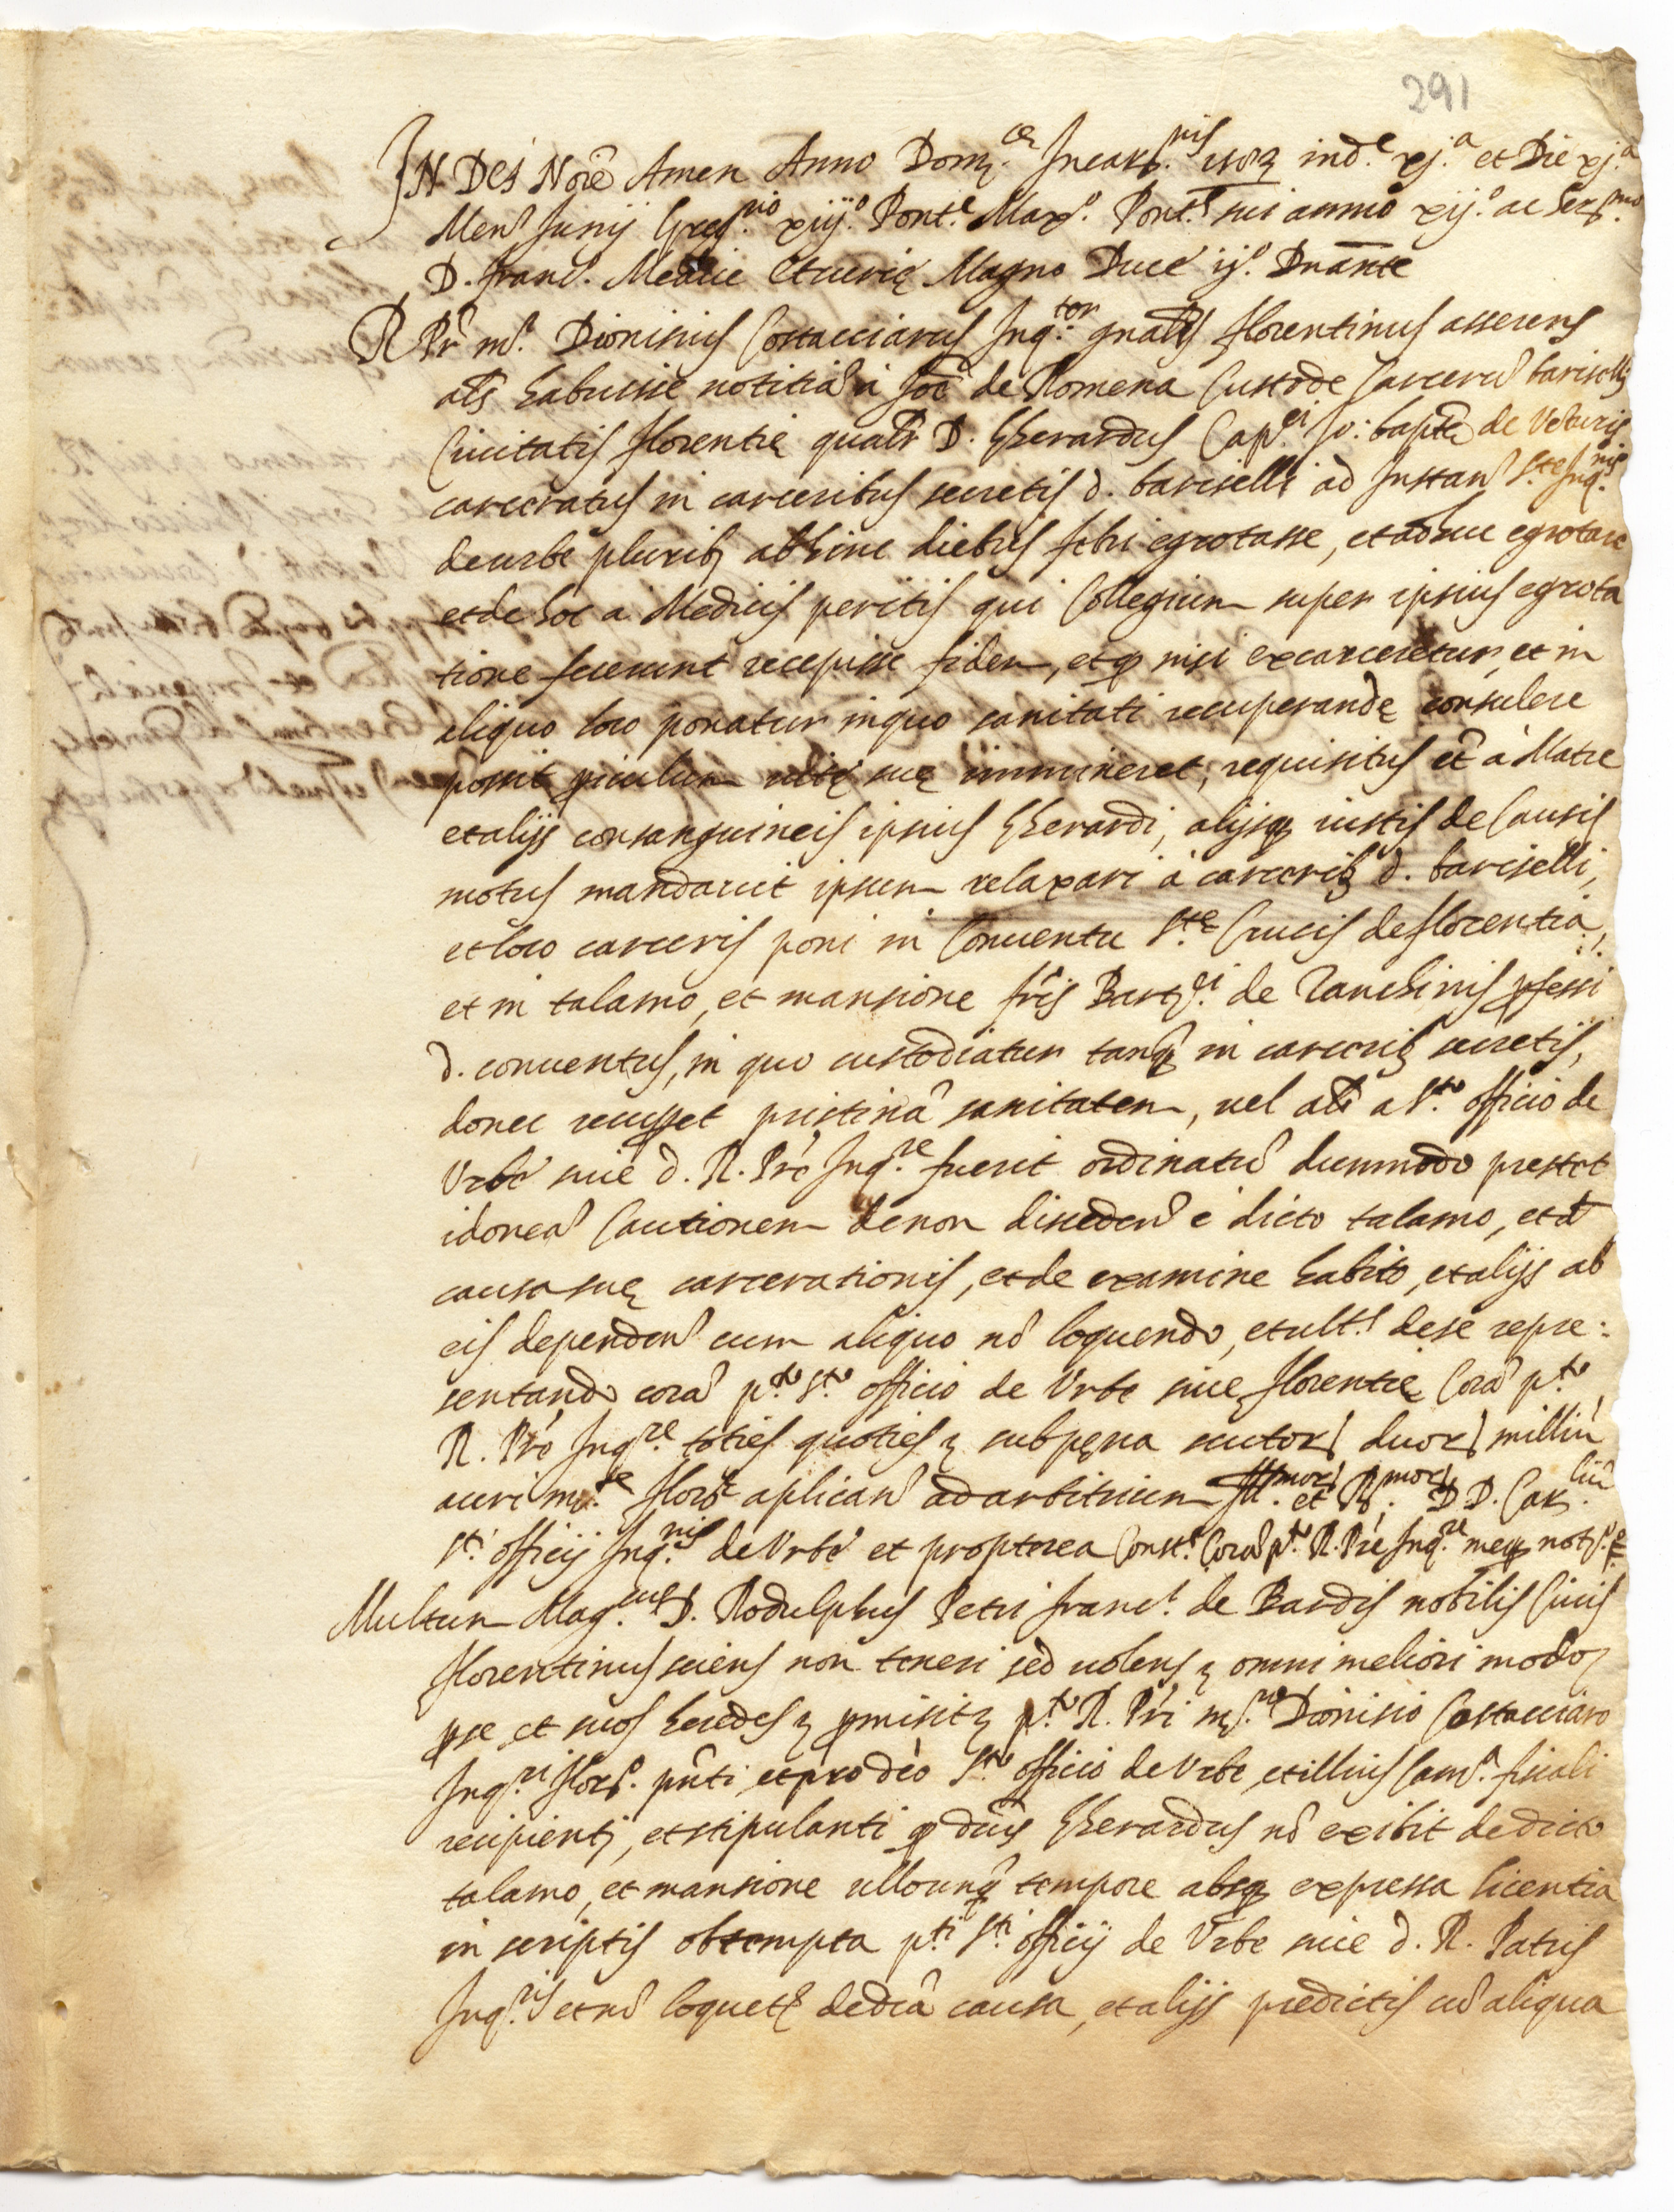 291
IN Dei Noĩe Amen Anno Dom.ce Incar.nis 1583 ind.e xj.a et Die xj.a
Mens Junij Greg.rio xiij.o Pont.e Max.o Pont.s sui anno xij.o ac Ser.mo
D. Franc.o Medice Etrurię Magno Duce ij.o Dnãnte
R Pr̃ m.r Dionisius Costacciarus Inq.tor gnãlis Florentinus asserens
als habuisse notitiã à Joẽ de Romena Custode Carcerũ bariselli
Ciuitatis Florentię qualr̃ D. Gherardus Cap.ei Jo: baptẽ de Veturis
carceratus in carceribus secretis d. bariselli ad Instan S.te Inq.nis
de urbe pluribꝫ abhinc diebus febri egrotasse, et adhuc egrotare
et de hoc a Medicis peritis qui Collegium super ipsius egrota
tione fecerunt recepisse fidem, et qꝫ nisi excarceretur, et in
aliquo loco ponatur in quo sanitati recuperandę consulere
possit ꝑiculum uitę suę immineret, requisitus et̃ à Matre
et alijs consanguineis ipsius Gherardi, alijsqꝫ iustis de Causis
motus mandauit ipsum relaxari à carceribꝫ d. bariselli,
et loco carceris poni in Conuentu S.tę Crucis de Florentia,
et in talamo, et mansione fr̃is Bart.ei de Zanchinis ꝓfessi
d. conuentus, in quo custodiatur tanqꝫ in carceribꝫ secretis,
donec recuꝑet pristinã sanitatem, uel alr̃ a S.to officio de
Urbe siue d. R. Prẽ Inq.re fuerit ordinatũ dummodo prestet
idoneã Cautionem de non discedend è dicto talamo, et d
causa suę carcerationis, et de examine habito, et alijs ab
eis dependen cum aliquo nõ loquendo, et ult.s de se repre:
sentando corã p.to S.to officio de Urbe siue Florentię Corã p.to
R. Prẽ Inq.re toties quoties ꝫ sub pęna scutorꝫ duorꝫ milliũ
auri mo.te Flor.e aplican ad arbitrium Ill.morꝫ et R.morꝫ D D. Car.liũ
S.ti officij Inq.nis de Urbe et propterea Const.s Corã p.to R. Prẽ Inq.re meqꝫ not.o
Multum Mag.cus D. Rodulphus Petri Franc.i de Bardis nobilis Ciuis
Florentinus sciens non teneri sed uolens ꝫ omni meliori modo ꝫ
ꝑ se et suos heredes ꝫ ꝓmisit ꝫ p.to R. Pr̃i m.ro Dionisio Costacciaro
Inq.ri Flor.o pñti et pro dc̃o S.to officio de Urbe, et illius Cam.a fiscali
recipienti, et stipulanti qꝫ dc̃us Gherardus nõ exibit de dicto
talamo, et mansione ullo unqꝫ tempore absqꝫ expressa licentia
in scriptis obtempta p.ti S.ti officij de Urbe siue d. R. Patris
Inq.ris et nõ loquetꝫ de dc̃a causa, et alijs predictis cũ aliqua